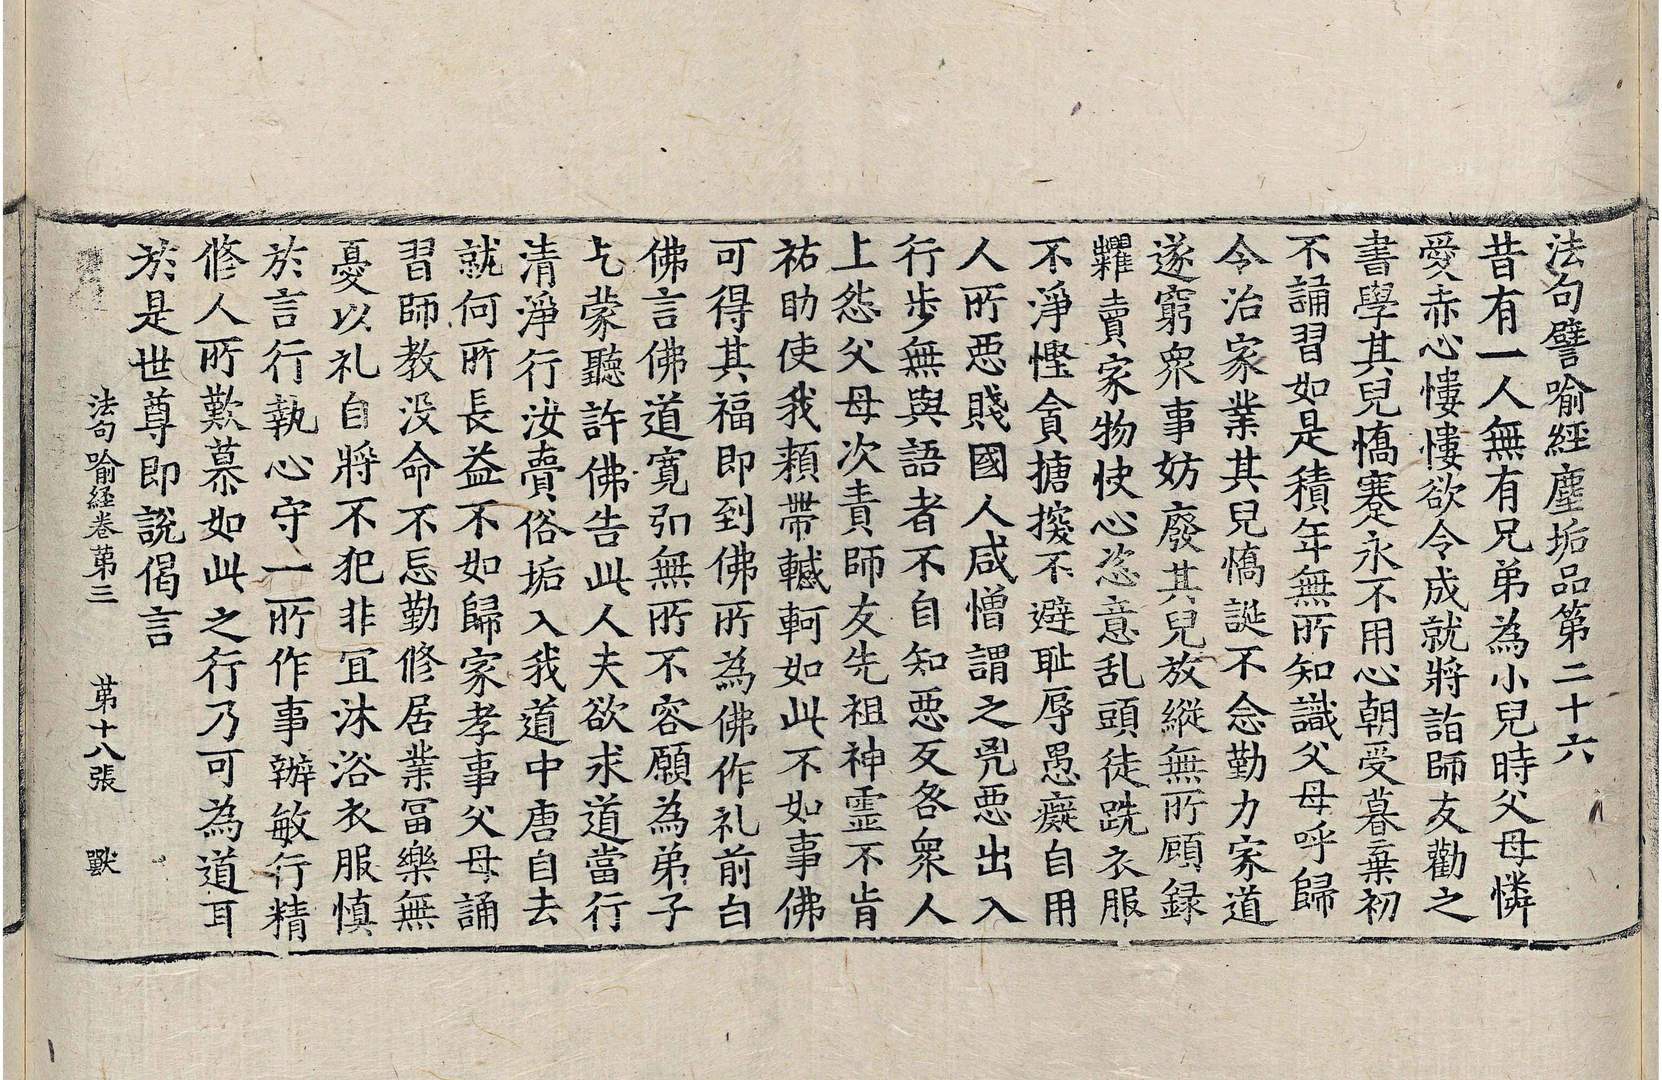 法句譬喻經塵垢品第二十六
昔有一人無有兄弟為小兒時父母憐
愛赤心慺慺欲令成就將詣師友勸之
書學其兒憍蹇永不用心朝受暮棄初
不誦習如是積年無所知識父母呼歸
令治家業其兒憍誕不念勤力家道
遂窮衆事妨廢其兒放縱無所顧録
糶賣家物快心恣意乱頭徒跣衣服
不淨慳貪搪揬不避耻辱愚癡自用
人所惡賤國人咸憎謂之兇惡出入
行步無與語者不自知惡反咎衆人
上怨父母次責師友先祖神靈不肯
祐助使我頼帶轗軻如此不如事佛
可得其福即到佛所為佛作礼前白
佛言佛道寛弘無所不容願為弟子
乞蒙聽許佛告此人夫欲求道當行
清淨行汝賷俗垢入我道中唐自去
就何所長益不如歸家孝事父母誦
習師教没命不忘勤修居業冨樂無
憂以礼自將不犯非冝沐浴衣服慎
於言行執心守一所作事辦敏行精
修人所歎慕如此之行乃可為道耳
於是世尊即說偈言
法句喻経卷苐三 苐十八張 獸